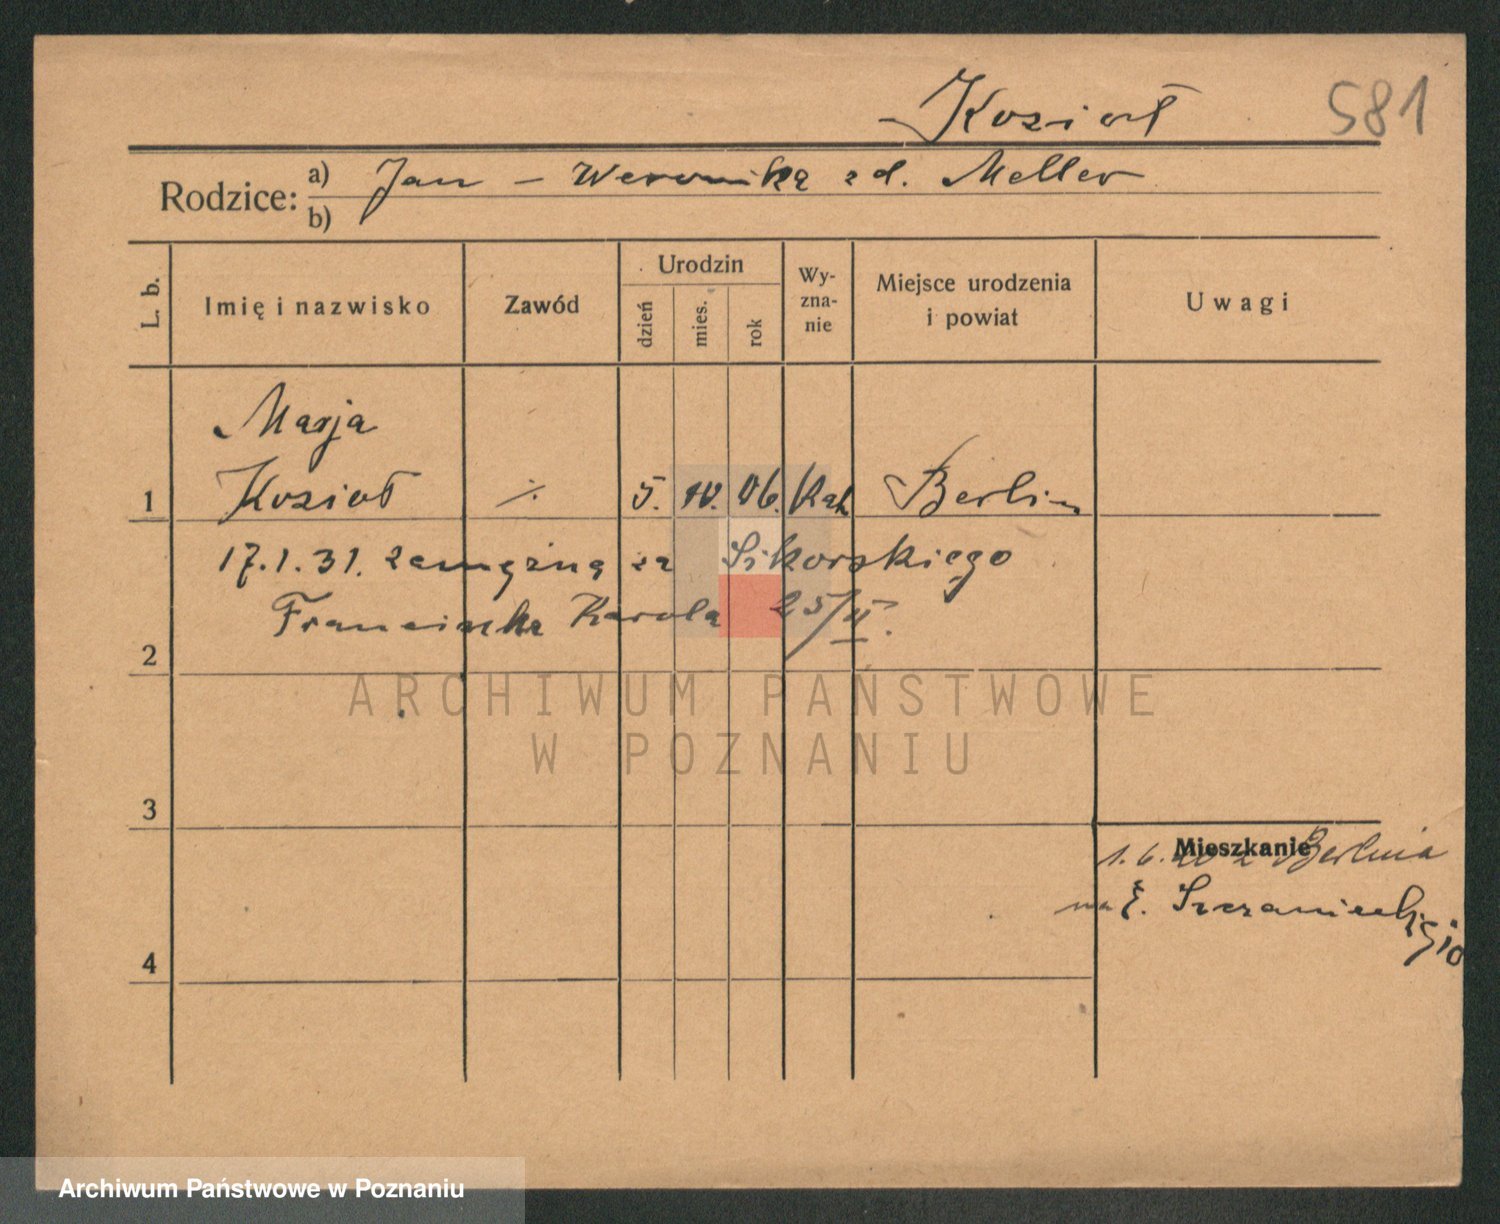 Kozioł 581
Rodzice: a) Jan – Weronika z d. Meller
b)
L. b. Imię i nazwisko Zawód Urodzin dzień mies. rok Wy-zna-nie Miejsce urodzenia i powiat Uwagi
Marja
1 Kozioł ∕. 5. IV. 06. Kat Berlin
17.1.31. zamężna za Sikorskiego
Franciszka Karola 25/II.
2
ARCHIWUM PAŃSTWOWE
W POZNANIU
3
Mieszkanie
1.6.20 z Berlina
na E. Szczanieckiej 10
4
Archiwum Państwowe w Poznaniu